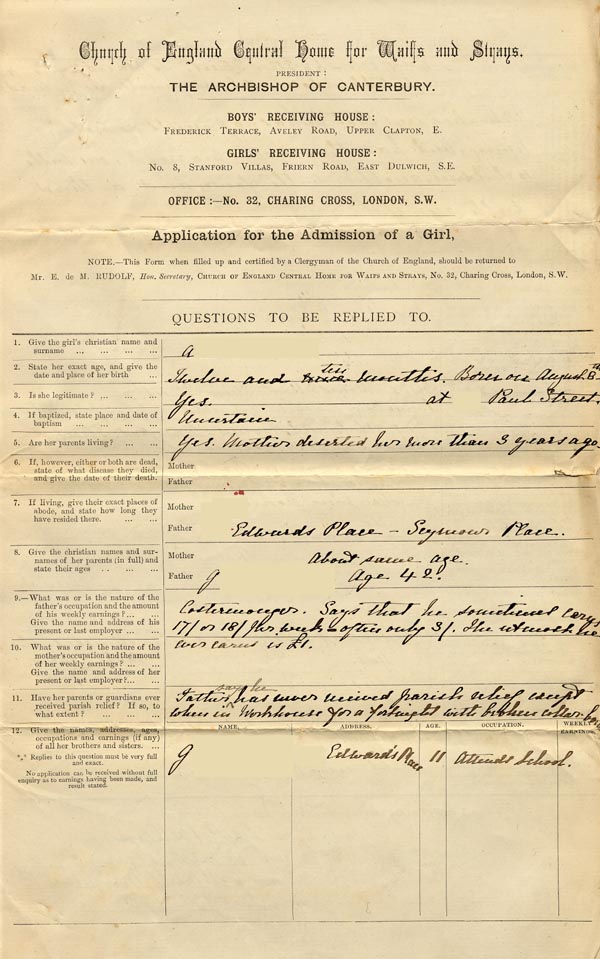 Church of England Central Home for Waifs and Strays.
PRESIDENT:
THE ARCHBISHOP OF CANTERBURY.
BOYS' RECEIVING HOUSE:
FREDERICK TERRACE, AVELEY ROAD, UPPER CLAPTON, E.
GIRLS' RECEIVING HOUSE:
NO. 8, STANFORD VILLAS, FRIERN ROAD, EAST DULWICH, S.E.
OFFICE:—No. 32, CHARING CROSS, LONDON, S.W.
Application for the Admission of a Girl,
NOTE.—This Form when filled up and certified by a Clergyman of the Church of England, should be returned to
Mr. E. de M. RUDOLF, Hon. Secretary, CHURCH OF ENGLAND CENTRAL HOME FOR WAIFS AND STRAYS, No. 32, Charing Cross, London, S.W.
QUESTIONS TO BE REPLIED TO.
1. Give the girl's christian name and
surname ... ... ... ...
A
2. State her exact age, and give the
date and place of her birth ...
ten
Twelve and months. Born on August 8th
3. Is she legitimate? ... ... ...
Yes. at Paul Street.
4. If baptized, state place and date of
baptism ... ... ... ...
Uncertain
5. Are her parents living? ... ...
Yes. Mother deserted her more than 3 years ago.
6. If, however, either or both are dead,
state of what disease they died,
and give the date of their death.
Mother
Father
7. If living, give their exact places of
abode, and state how long they
have resided there. ... ...
Mother
Father
Edwards Place – Seymour Place.
8. Give the christian names and sur-
names of her parents (in full) and
state their ages .. ... ...
Mother About same age.
Father G Age 42.
9.—What was or is the nature of the
father's occupation and the amount
of his weekly earnings? ... ...
Give the name and address of his
present or last employer ... ...
Costermonger. Says that he sometimes earns
17/ or 18/ per week – often only 3/. The utmost he
ever earns is £1.
10. What was or is the nature of the
mother's occupation and the amount
of her weekly earnings? ... ...
Give the name and address of her
present or last employer? ...
11. Have her parents or guardians ever
received parish relief? If so, to
what extent? ... ... ...
says he
Father has never received parish relief except
when in Workhouse for a fortnight with broken collar-bone
12. Give the names, addresses, ages,
occupations and earnings (if any)
of all her brothers and sisters. ...
*** Replies to this question must be very full
and exact.
No application can be received without full
enquiry as to earnings having been made, and
result stated.
NAME. ADDRESS. AGE. OCCUPATION. WEEKLY EARNINGS.
G Edwards Place 11 Attends School.